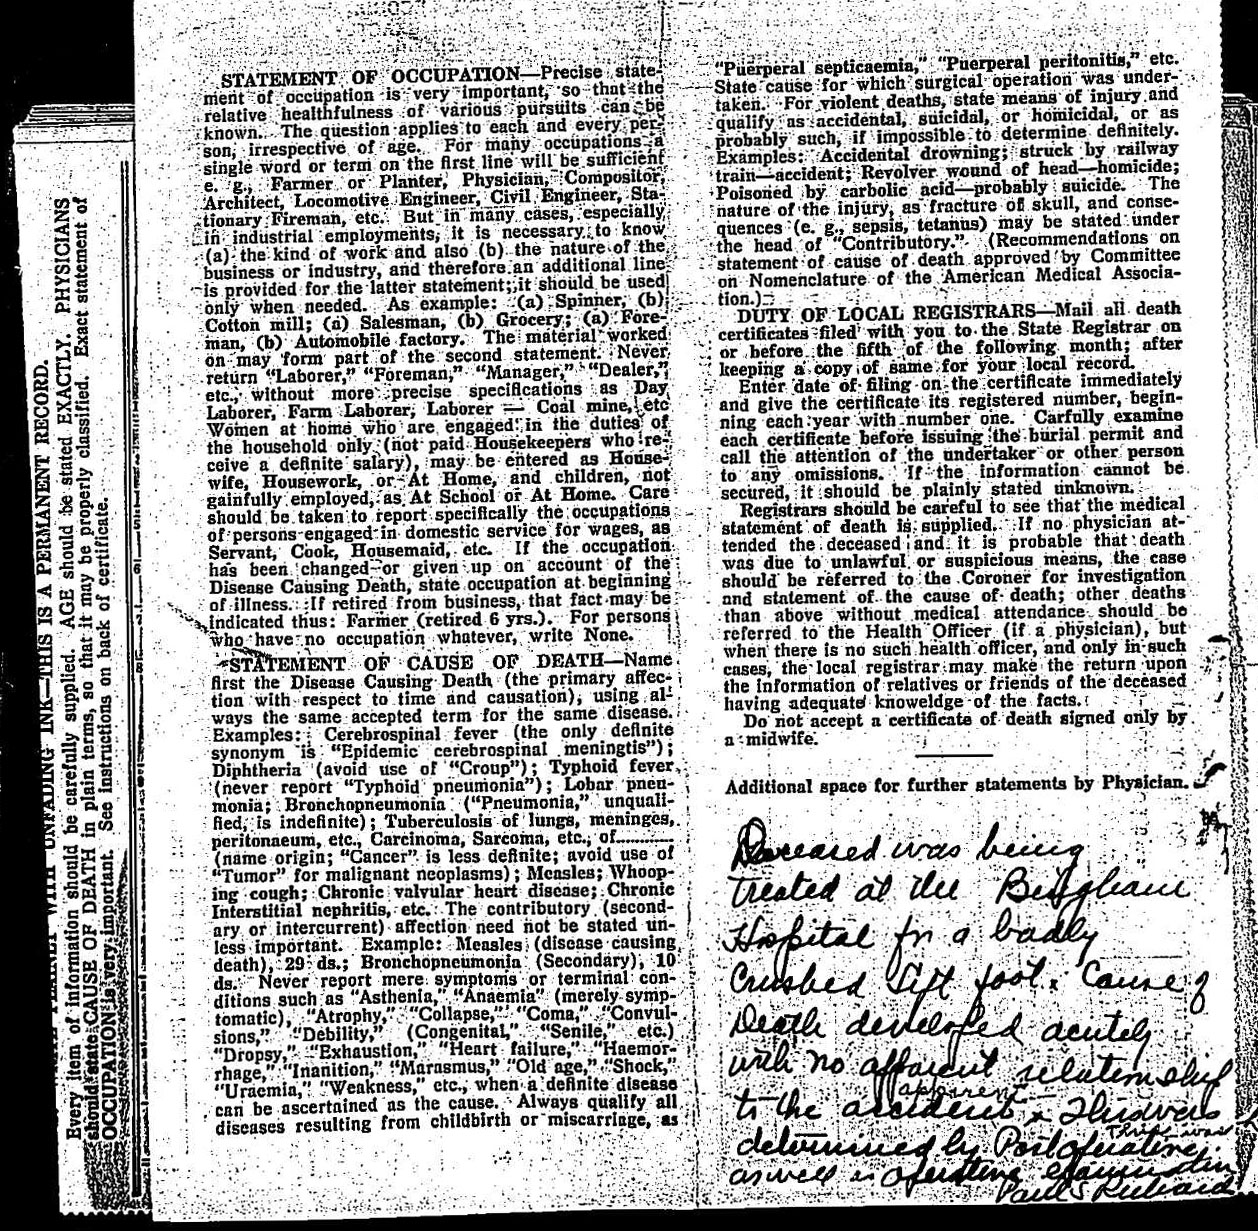 UNFADING INK—THIS IS A PERMANENT RECORD.
Every item of information should be carefully supplied. AGE should be stated EXACTLY. PHYSICIANS
should state CAUSE OF DEATH in plain terms, so that it may be properly classified. Exact statement of
OCCUPATION is very important. See instructions on back of certificate.
STATEMENT OF OCCUPATION—Precise state-
ment of occupation is very important, so that the
relative healthfulness of various pursuits can be
known. The question applies to each and every per-
son, irrespective of age. For many occupations a
single word or term on the first line will be sufficient
e. g., Farmer or Planter, Physician, Compositor,
Architect, Locomotive Engineer, Civil Engineer, Sta-
tionary Fireman, etc. But in many cases, especially
in industrial employments, it is necessary to know
(a) the kind of work and also (b) the nature of the
business or industry, and therefore an additional line
is provided for the latter statement; it should be used
only when needed. As example: (a) Spinner, (b)
Cotton mill; (a) Salesman, (b) Grocery; (a) Fore-
man, (b) Automobile factory. The material worked
on may form part of the second statement. Never
return "Laborer," "Foreman," "Manager," "Dealer,"
etc., without more precise specifications as Day
Laborer, Farm Laborer, Laborer — Coal mine, etc
Women at home who are engaged in the duties of
the household only (not paid Housekeepers who re-
ceive a definite salary), may be entered as House-
wife, Housework, or At Home, and children, not
gainfully employed, as At School or At Home. Care
should be taken to report specifically the occupations
of persons engaged in domestic service for wages, as
Servant, Cook, Housemaid, etc. If the occupation
has been changed or given up on account of the
Disease Causing Death, state occupation at beginning
of illness. If retired from business, that fact may be
indicated thus: Farmer (retired 6 yrs.). For persons
who have no occupation whatever, write None.
STATEMENT OF CAUSE OF DEATH—Name
first the Disease Causing Death (the primary affec-
tion with respect to time and causation), using al-
ways the same accepted term for the same disease.
Examples: Cerebrospinal fever (the only definite
synonym is "Epidemic cerebrospinal meningtis");
Diphtheria (avoid use of "Croup"); Typhoid fever
(never report "Typhoid pneumonia"); Lobar pneu-
monia; Bronchopneumonia ("Pneumonia," unquali-
fied, is indefinite); Tuberculosis of lungs, meninges,
peritonaeum, etc., Carcinoma, Sarcoma, etc., of............
(name origin; "Cancer" is less definite; avoid use of
"Tumor" for malignant neoplasms); Measles; Whoop-
ing cough; Chronic valvular heart disease; Chronic
Interstitial nephritis, etc. The contributory (second-
ary or intercurrent) affection need not be stated un-
less important. Example: Measles (disease causing
death), 29 ds.; Bronchopneumonia (Secondary), 10
ds. Never report mere symptoms or terminal con-
ditions such as "Asthenia," "Anaemia" (merely symp-
tomatic), "Atrophy," "Collapse," "Coma," "Convul-
sions," "Debility," (Congenital," "Senile," etc.)
"Dropsy," "Exhaustion," "Heart failure," "Haemor-
rhage," "Inanition," "Marasmus," "Old age," "Shock,"
"Uraemia," "Weakness," etc., when a definite disease
can be ascertained as the cause. Always qualify all
diseases resulting from childbirth or miscarriage, as
"Puerperal septicaemia," "Puerperal peritonitis," etc.
State cause for which surgical operation was under-
taken. For violent deaths, state means of injury and
qualify as accidental, suicidal, or homicidal, or as
probably such, if impossible to determine definitely.
Examples: Accidental drowning; struck by railway
train—accident; Revolver wound of head—homicide;
Poisoned by carbolic acid—probably suicide. The
nature of the injury, as fracture of skull, and conse-
quences (e. g., sepsis, tetanus) may be stated under
the head of "Contributory." (Recommendations on
statement of cause of death approved by Committee
on Nomenclature of the American Medical Associa-
tion.)
DUTY OF LOCAL REGISTRARS—Mail all death
certificates filed with you to the State Registrar on
or before the fifth of the following month; after
keeping a copy of same for your local record.
Enter date of filing on the certificate immediately
and give the certificate its registered number, begin-
ning each year with number one. Carfully examine
each certificate before issuing the burial permit and
call the attention of the undertaker or other person
to any omissions. If the information cannot be
secured, it should be plainly stated unknown.
Registrars should be careful to see that the medical
statement of death is supplied. If no physician at-
tended the deceased and it is probable that death
was due to unlawful or suspicious means, the case
should be referred to the Coroner for investigation
and statement of the cause of death; other deaths
than above without medical attendance should be
referred to the Health Officer (if a physician), but
when there is no such health officer, and only in such
cases, the local registrar may make the return upon
the information of relatives or friends of the deceased
having adequate knoweldge of the facts.
Do not accept a certificate of death signed only by
a midwife.
Additional space for further statements by Physician.
Deceased was being
treated at the Bingham
Hospital for a badly
Crushed left foot. Cause of
Death developed acutely
with no apparent relationship
apparent
to the accident & This was
This was
determined by Postoperative
as well as operative examination
Paul S Richards